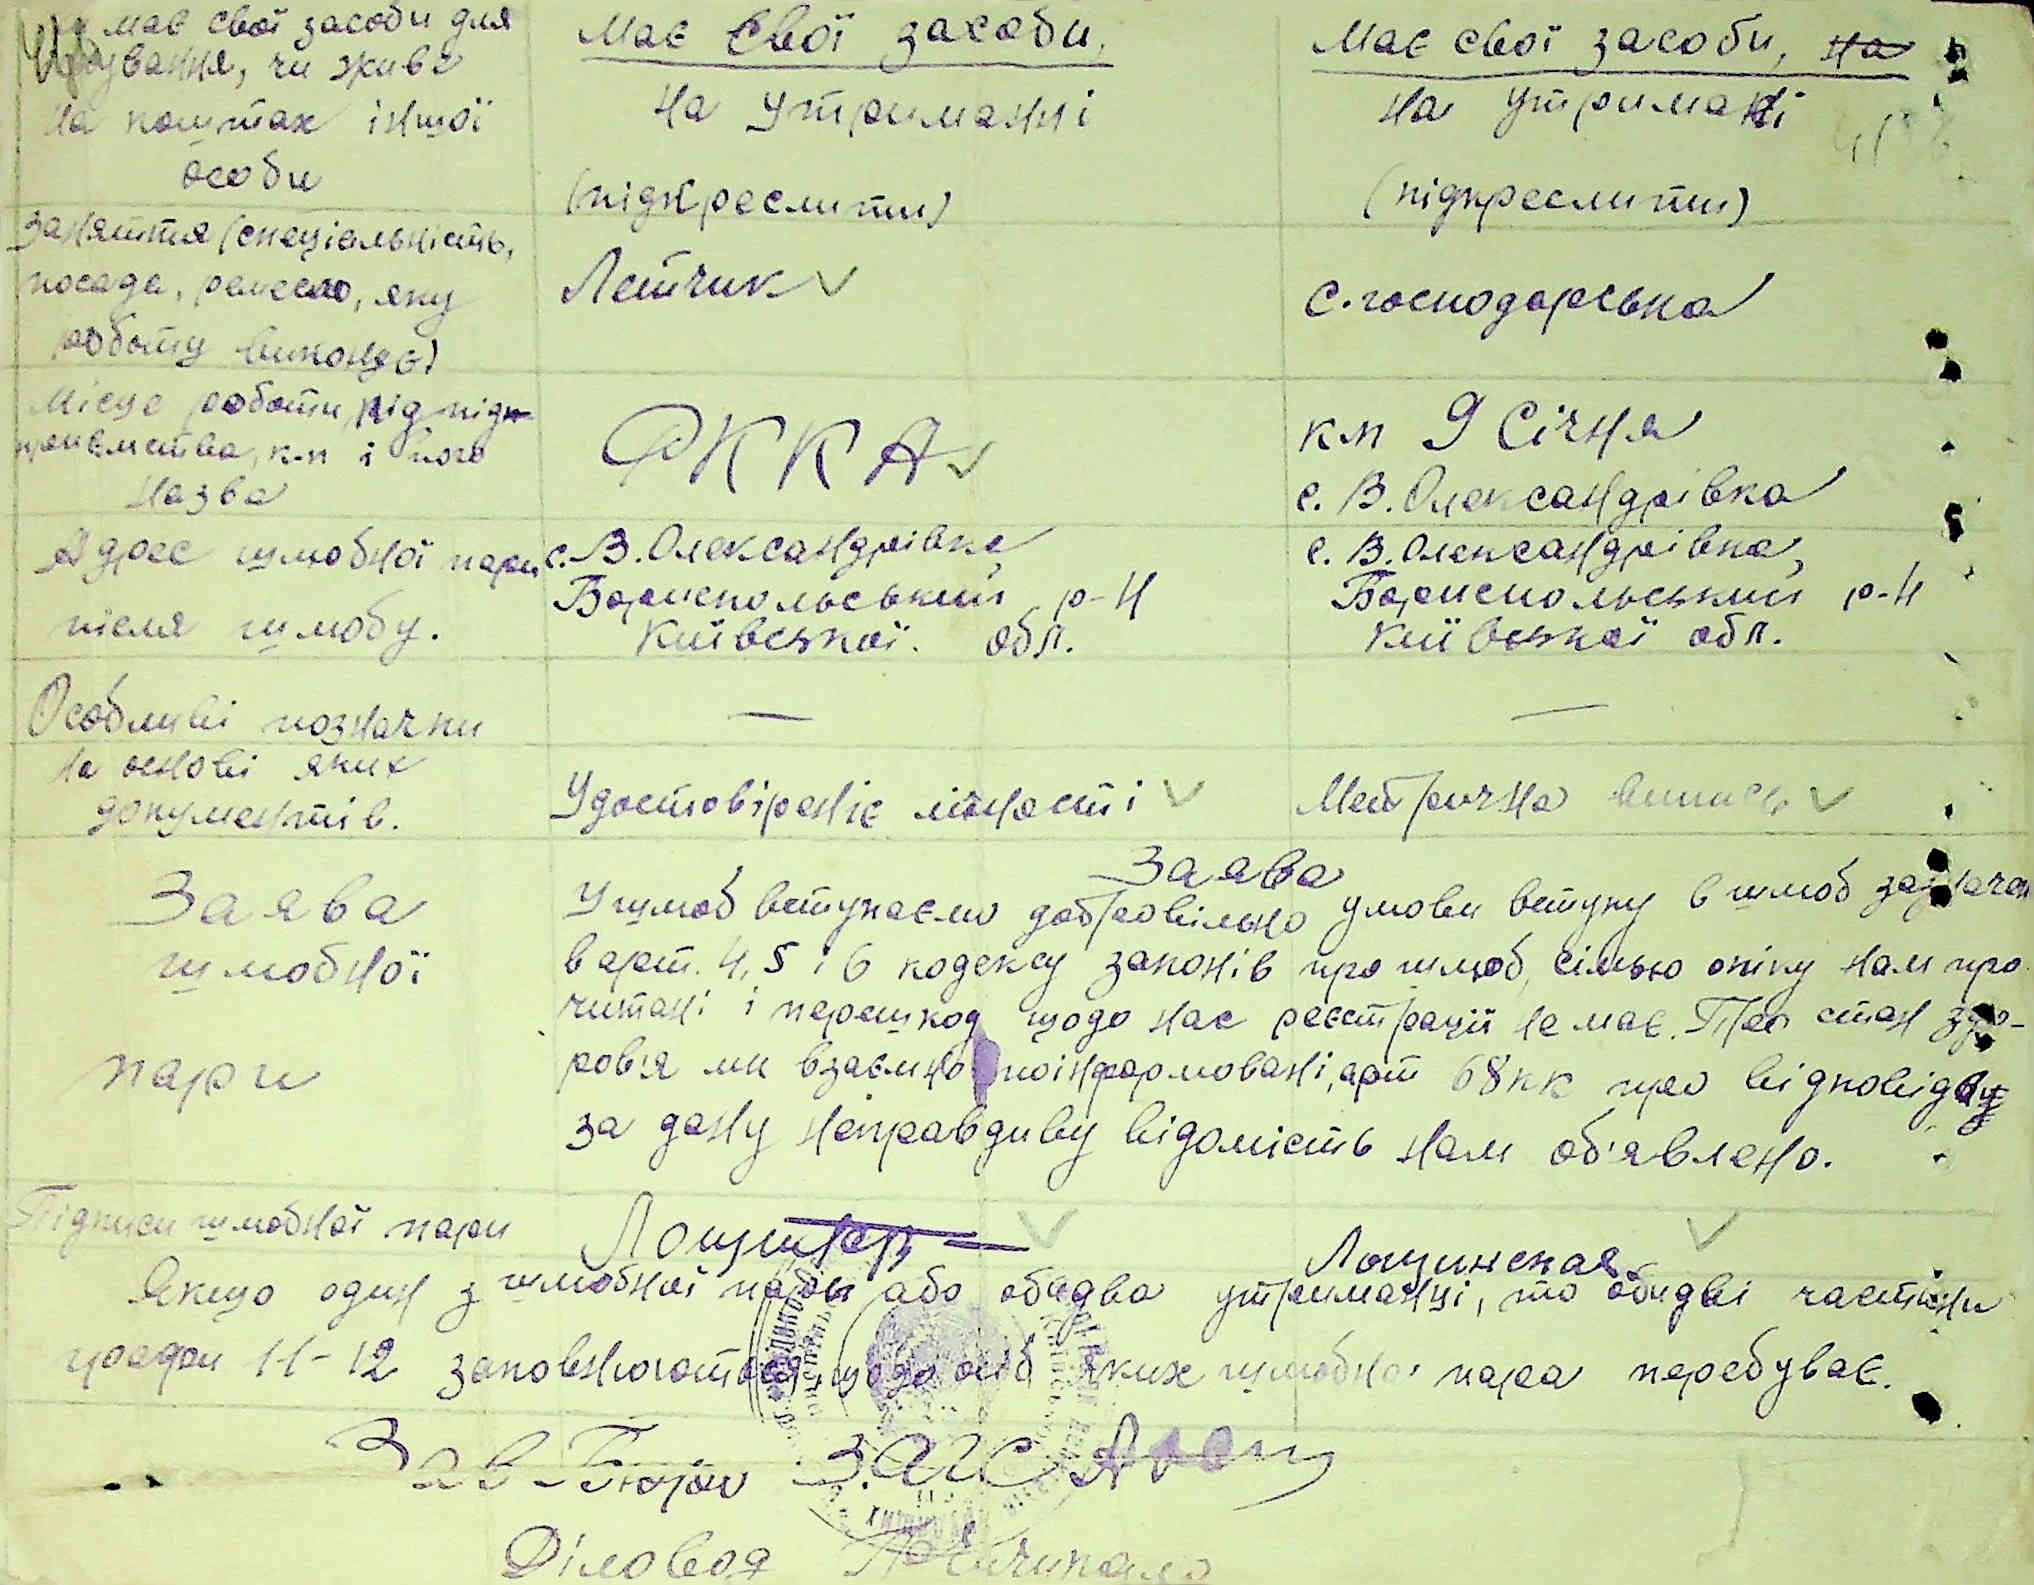 має свої засоби для
чи живе
на коштах іншої
особи
Має свої засоби,
на утриманні
(підкреслити)
Має свої засоби, на
на утримані
(підкреслити)
Заняття (спеціальність,
посада, ремесло, яку
роботу виконує)
Летчик
с.господарська
Місце роботи, від підп-
приємства, к-п і його
назва
РККА
км 9 Січня
с. В. Олександрівка
Адрес шлюбної пари
після шлюбу.
с. В. Олександрівка,
Бориспольський р-н
Київської. обл.
с. В. Олександрівка,
Бориспольський р-н
Київської обл.
Особливі позначки
—
—
На основі яких
документів.
Удостовіреніє лічності
Метрична випись
Заява
шлюбної
пари
Заява
У шлюб вступаємо добровільно умови вступу в шлюб зазначен
в арт. 4, 5 і 6 кодексу законів про шлюб, сімью опіку нам про
читані і перешкод щодо нас реєстрації немає. Про стан здо-
ров'я ми взаємно поінформовані, арт 68 кк про відповідь
за дану неправдиву відомість нам об'явлено.
Підписи шлюбної пари
Лощинская
Якщо один з шлюбної пари або обидва утриманці, то обидві частини
графи 11-12 заповнюються щодо осіб яких шлюбна пара перебуває.
Зав-Бюро ЗАГС
Діловод